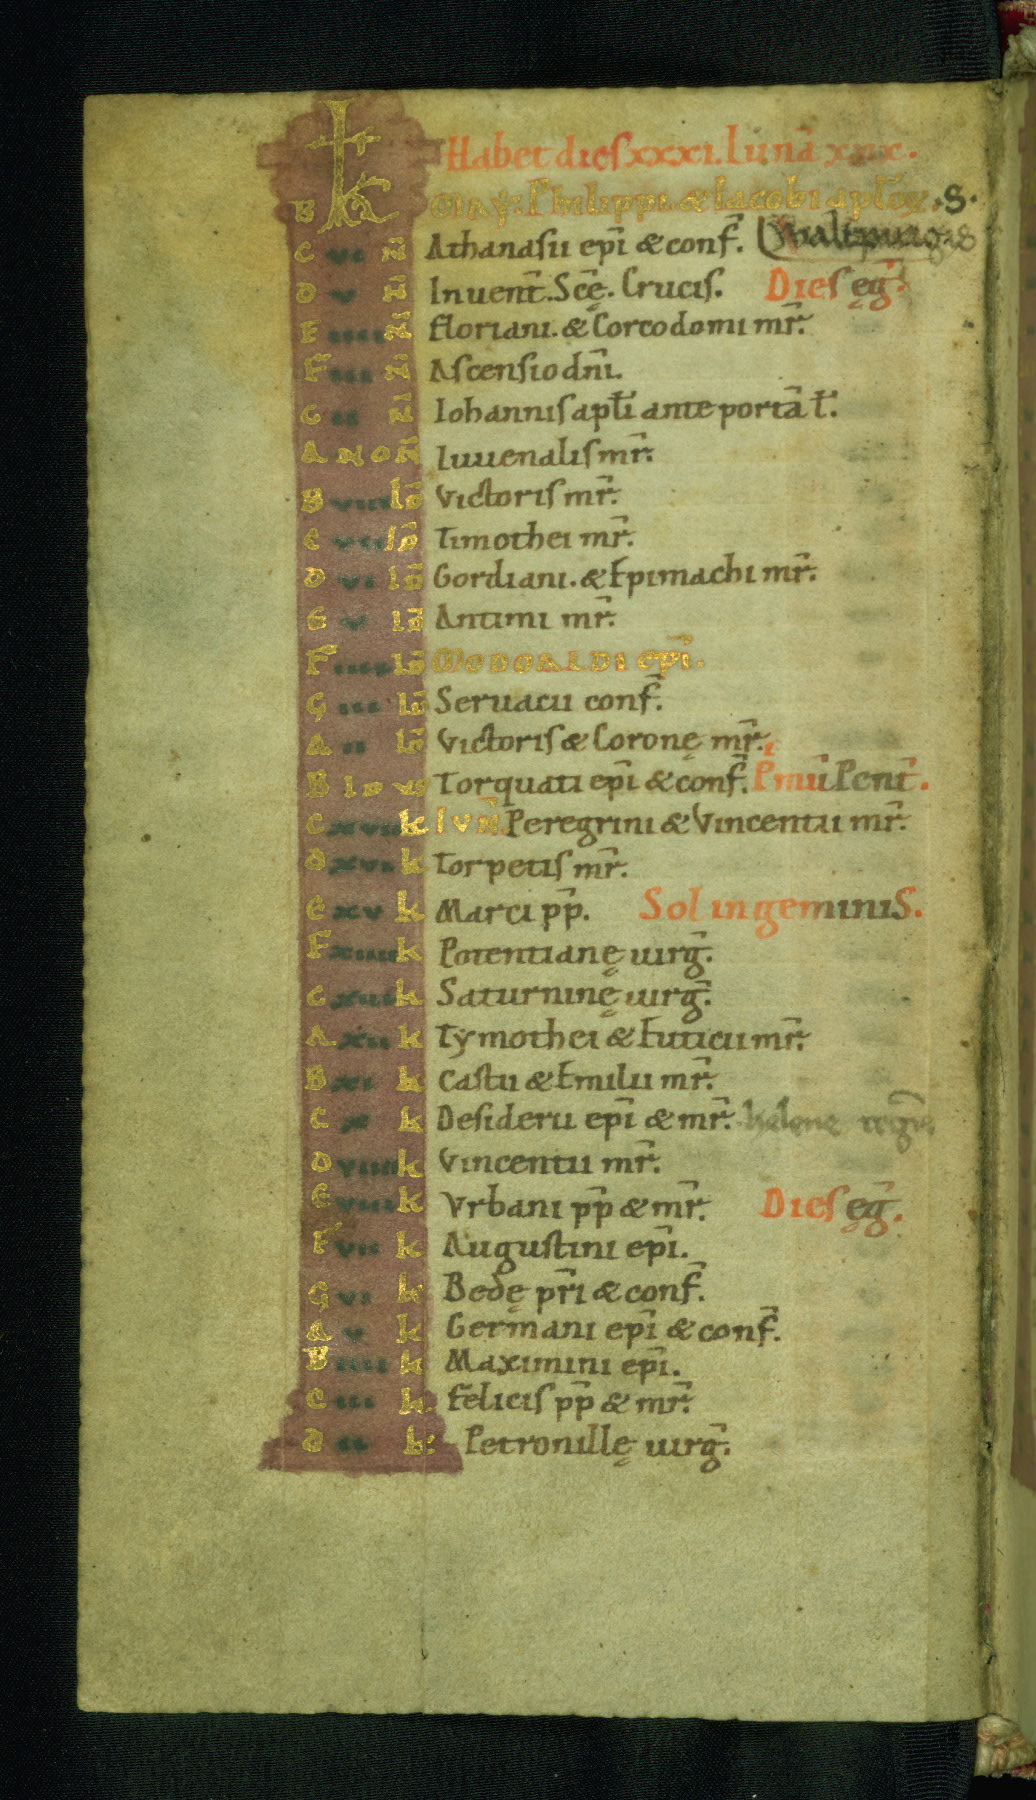 Habet dieſ xxxi. Lunā xxx.
B kł Maẏ. Philippi. & Iacobi aptoꝝ. S.
C vi n̄ Athanaſii ep̄i & conf̄. Waltpurgis
D v n̄ Inuent̄. Sc̄ę. Cruciſ. Dieſ eḡ.
E iiii n̄ Floriani. & Corcodomi mr̄.
F iii n̄ Aſcenſio dn̄i.
G ii n̄ Iohanniſ apt̄i ante portā t̄.
A NON̄ Iuuenaliſ mr̄.
B viii id̄ Victoriſ mr̄.
C vii id̄ Timothei mr̄.
D vi id̄ Gordiani. & Epimachi mr̄.
E v id̄ Antimi mr̄.
F iiii id̄ MODOALDI ep̄i.
G iii id̄ Seruacii conf̄.
A ii id̄ Victoriſ & Coronę mr̄.
B IDVS Torquati ep̄i & conf̄. P̄mū Pent̄.
C xvii k IVN̄. Peregrini & Vincentii mr̄.
D xvi k Torpetiſ mr̄.
E xv k Marci pp̄. Sol in geminiS.
F xiiii k Potentianę uirḡ.
G xiii k Saturninę uirḡ.
A xii k Tẏmothei & Euticii mr̄.
B xi k Caſtii & Emilii mr̄.
C x k Deſiderii ep̄i & mr̄. helene regin̄
D viiii k Vincentii mr̄.
E viii k Vrbani pp̄ & mr̄. Dieſ eḡ.
F vii k Auguſtini ep̄i.
G vi k Bedę pr̄i & conf̄.
A v k Germani ep̄i & conf̄.
B iiii k Maximini ep̄i.
C iii k. Feliciſ pp̄ & mr̄.
D ii k: Petronillę uirḡ.